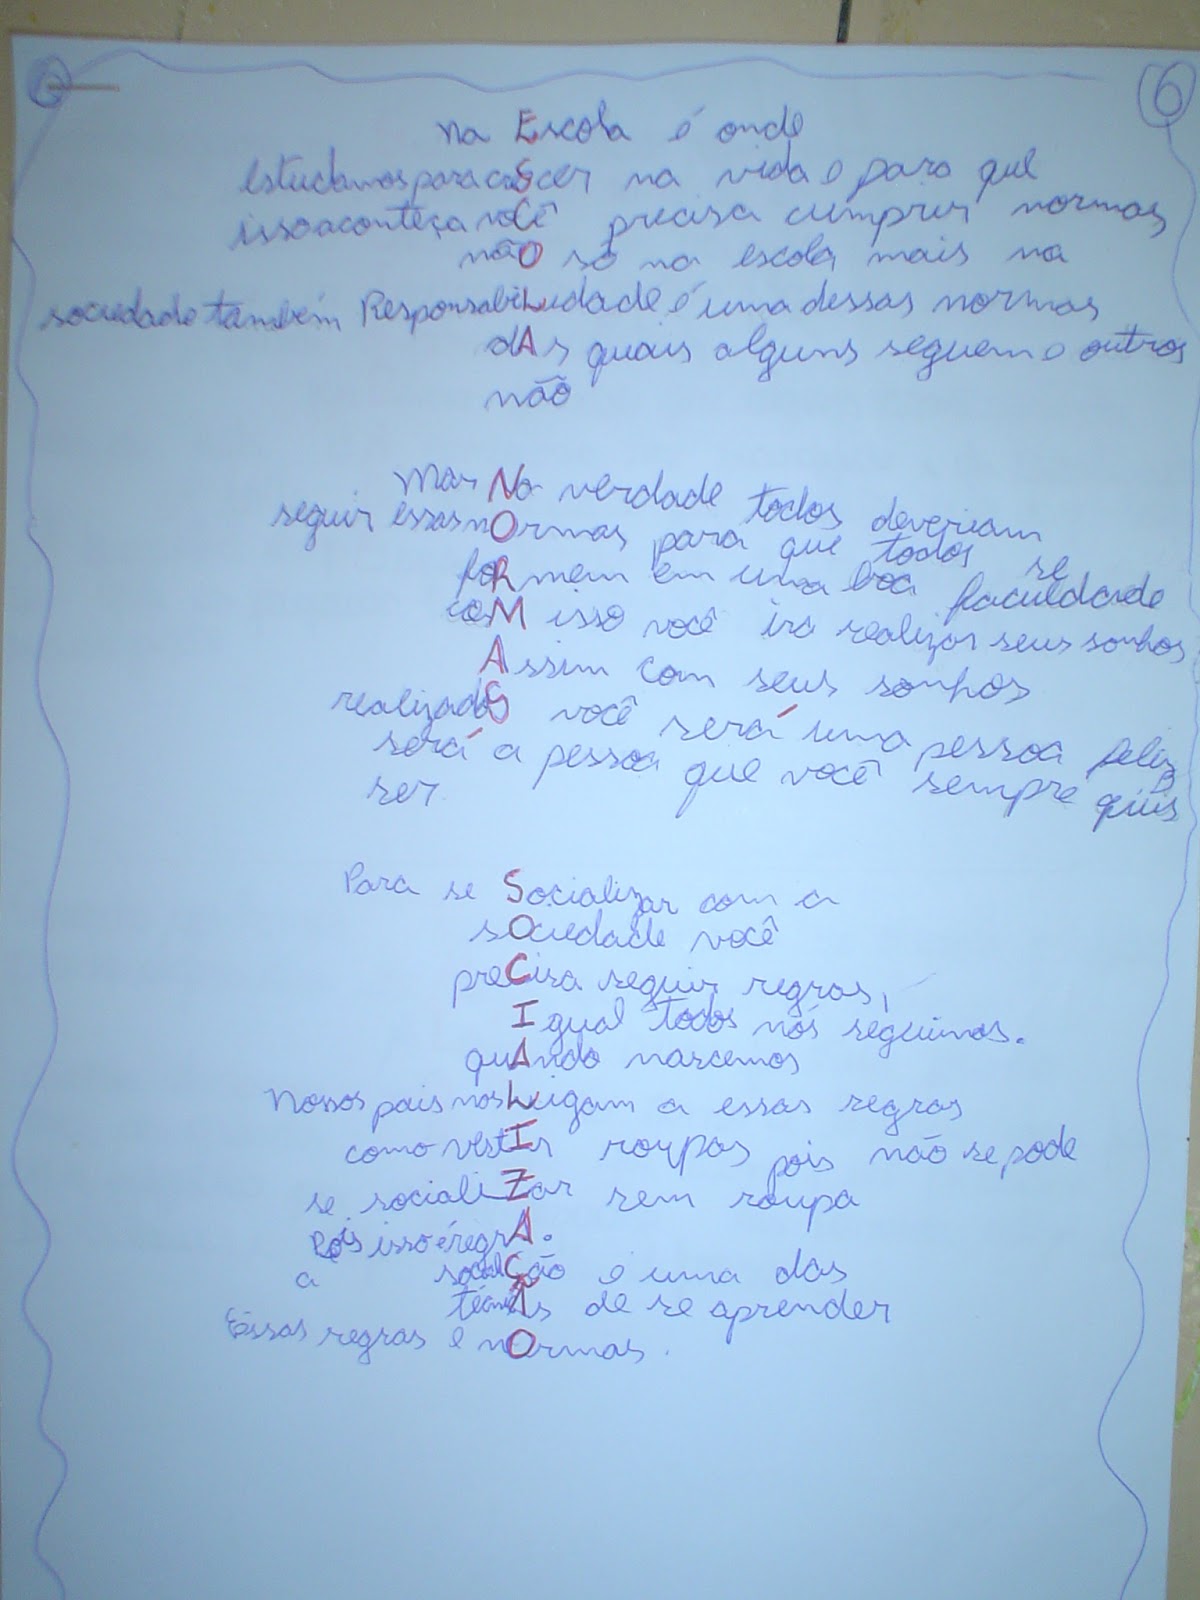 6
Na Escola é onde
estudamos para creScer na vida e para que
isso aconteça voCê precisa cumprir normas
nãO só na escola mais na
sociedade também ResponsabiLidade é uma dessas normas
dAs quais alguns seguem e outros
não
Mas Na verdade todos deveriam
seguir essas nOrmas para que todos se
foRmem em uma boa faculdade
coM isso você irá realizar seus sonhos
Assim com seus sonhos
realizadoS você será uma pessoa feliz
será a pessoa que você sempre quis
ser.
Para se Socializar com a
sOciedade você
preCisa seguir regras,
Igual todos nós seguimos.
quAndo nascemos
Nossos pais nos Ligam a essas regras
como vestIr roupas pois não se pode
se socialiZar sem roupa
Pois isso é regrA.
a ção é uma das
de se aprender
Essas regras e nOrmas.